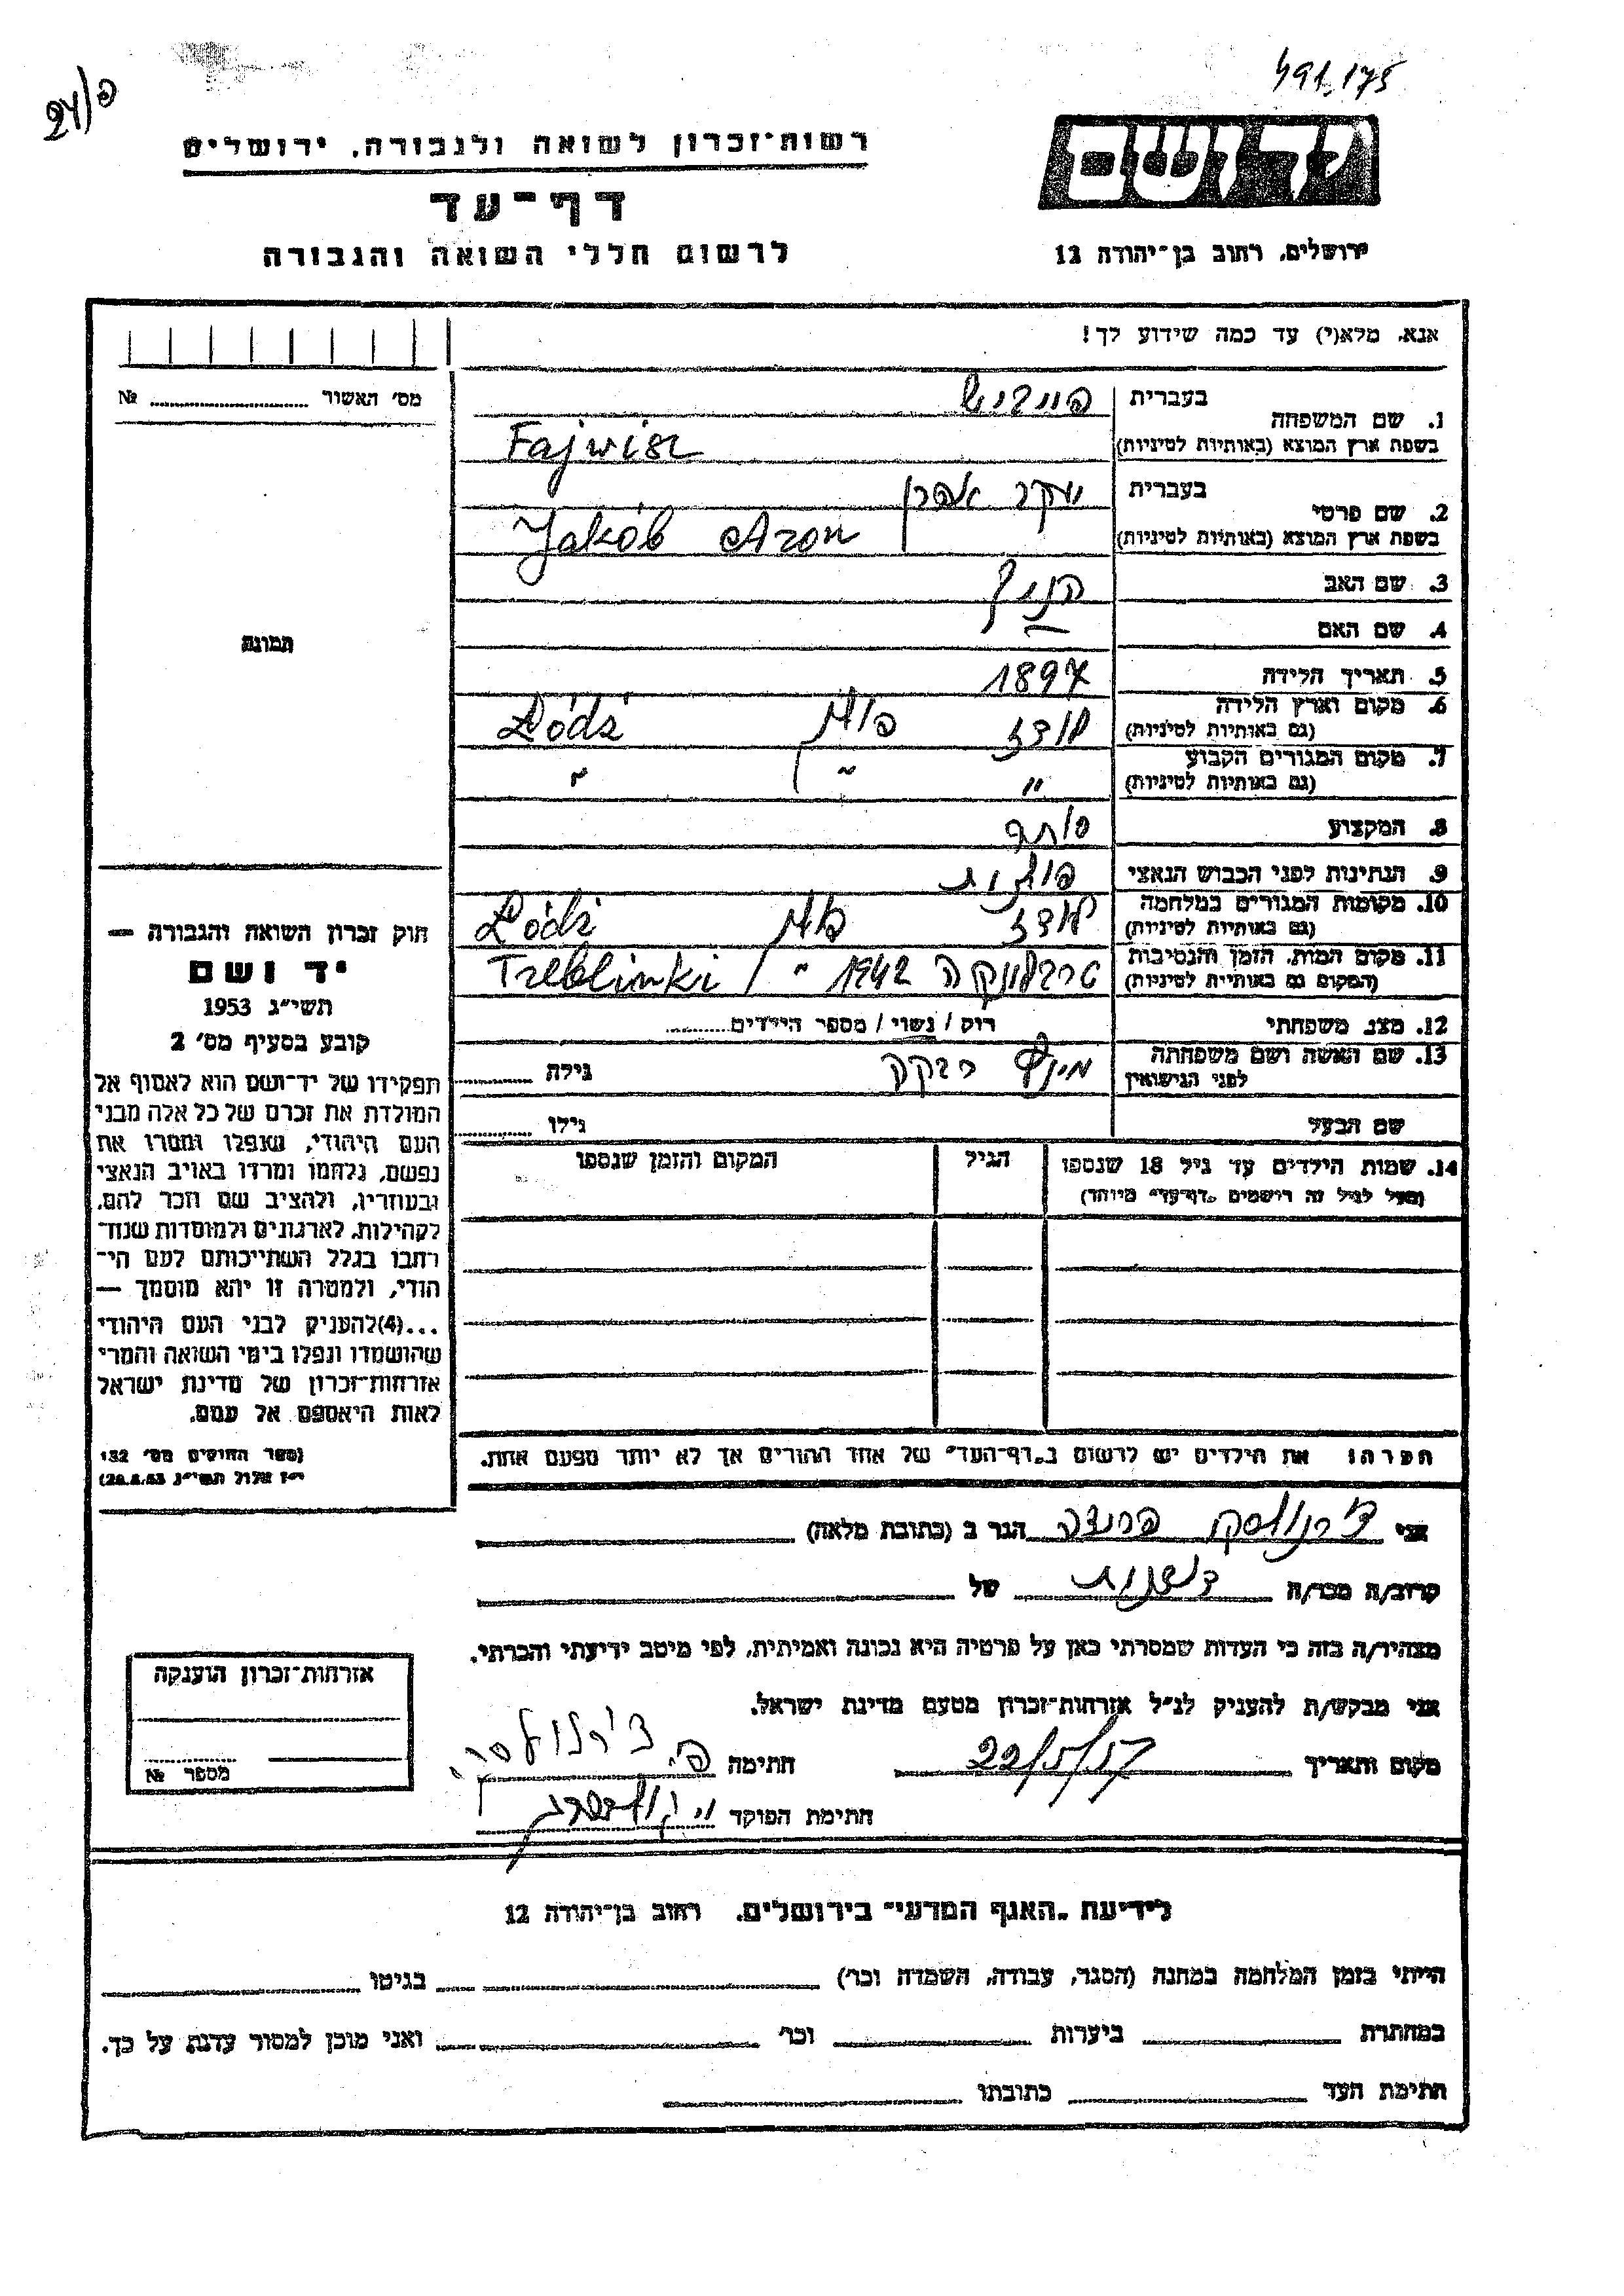 491.175
24/פ
יד ושם
ירושלים, רחוב בן-יהודה 12
רשות-זכרון לשואה ולגבורה, ירושלים
דף-עד
לרשום חללי השואה והגבורה
אנא, מלא(י) עד כמה שידוע לך!
1. שם המשפחה
בעברית פייביש
בשפת ארץ המוצא (באותיות לטיניות) Fajwisz
2. שם פרטי
בעברית יעקב אהרן
בשפת ארץ המוצא (באותיות לטיניות) Jakób Aron
3. שם האב הניך
4. שם האם —
5. תאריך הלידה 1897
6. מקום וארץ הלידה לודז פולין Łódź
(גם באותיות לטיניות)
7. מקום המגורים הקבוע " " "
(גם באותיות לטיניות)
8. המקצוע סוחר
9. הנתינות לפני הכבוש הנאצי פולנית
10. מקומות המגורים במלחמה לודז פולין Łódź
(גם באותיות לטיניות)
11. מקום המות, הזמן והנסיבות טרבלינקה 1942 " Treblinki
(המקום גם באותיות לטיניות)
12. מצב משפחתי רווק / נשוי / מספר הילדים
13. שם האשה ושם משפחתה רבקה גילה
לפני הנישואין
שם הבעל גילו
14. שמות הילדים עד גיל 18 שנספו הגיל המקום והזמן שנספו
(מעל לגיל זה רושמים "דף-עד" מיוחד)
הערה: את הילדים יש לרשום ב"דף-העד" של אחד ההורים אך לא יותר מפעם אחת.
מס' האשור №
תמונה
חוק זכרון השואה והגבורה —
יד ושם
תשי"ג 1953
קובע בסעיף מס' 2
תפקידו של יד-ושם הוא לאסוף אל
המולדת את זכרם של כל אלה מבני
העם היהודי, שנפלו ומסרו את
נפשם, נלחמו ומרדו באויב הנאצי
ובעוזריו, ולהציב שם וזכר להם,
לקהילות, לארגונים ולמוסדות שנח־
רבו בגלל השתייכותם לעם הי־
הודי, ולמטרה זו יהא מוסמך —
...(4) להעניק לבני העם היהודי
שהושמדו ונפלו בימי השואה והמרי
אזרחות-זכרון של מדינת ישראל
לאות היאספם אל עמם.
(ספר החוקים מס' 132
י"ז אלול תשי"ג 28.8.53)
אני הגר ב (כתובת מלאה)
קרוב/ה מכר/ה שכנות של
מצהיר/ה בזה כי העדות שמסרתי כאן על פרטיה היא נכונה ואמיתית, לפי מיטב ידיעתי והכרתי.
אני מבקש/ת להעניק לנ"ל אזרחות-זכרון מטעם מדינת ישראל.
מקום ותאריך 22/5/57 חתימה
חתימת הפוקד
אזרחות-זכרון הוענקה
מספר №
לידיעת "האגף המדעי" בירושלים, רחוב בן-יהודה 12
הייתי בזמן המלחמה במחנה (הסגר, עבודה, השמדה וכו') בגיטו
במחתרת ביערות וכו' ואני מוכן למסור עדות על כך.
חתימת העד כתובתו